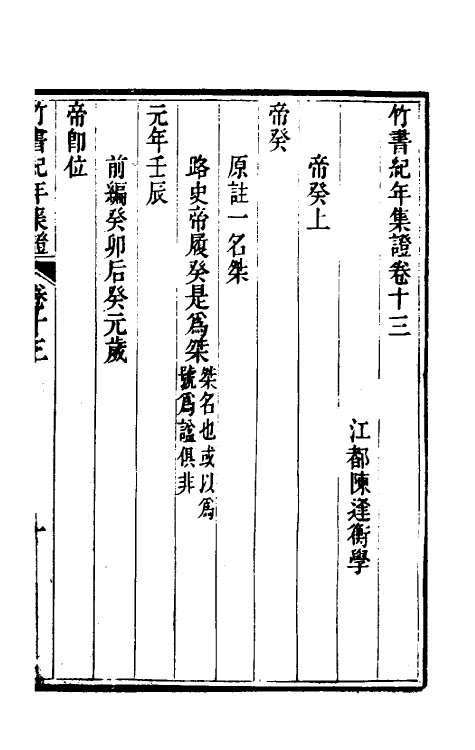 竹書紀年集證卷十三
江都陳逢衡學
帝癸上
帝癸
原註一名桀
路史帝履癸是爲桀桀名也或以爲
號爲諡俱非
元年壬辰
前編癸卯后癸元歲
帝卽位
竹書紀年集證
卷十三
一